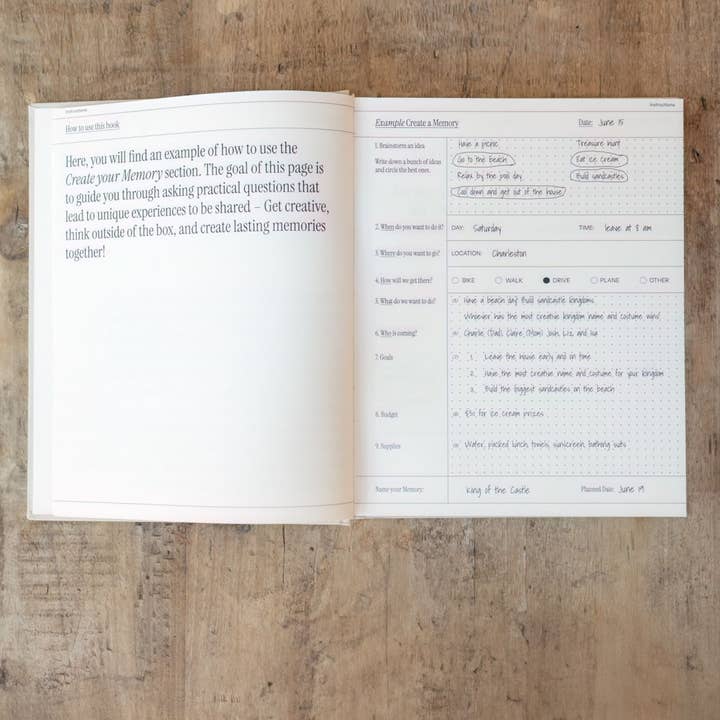 Instructions
How to use this book
Here, you will find an example of how to use the
Create your Memory section. The goal of this page is
to guide you through asking practical questions that
lead to unique experiences to be shared – Get creative,
think outside of the box, and create lasting memories
together!
Instructions
Example Create a Memory Date: June 15
1. Brainstorm an idea
Write down a bunch of ideas
and circle the best ones.
Have a picnic Treasure hunt
Go to the beach Eat ice cream
Relax by the pool day Build sandcastles
Cool down and get out of the house
2. When do you want to do it? DAY: Saturday TIME: leave at 8 am
3. Where do you want to go? LOCATION: Charleston
4. How will we get there? BIKE WALK DRIVE PLANE OTHER
5. What do we want to do? Have a beach day! Build sandcastle kingdoms.
Whoever has the most creative kingdom name and costume wins!
6. Who is coming? Charlie (Dad), Claire (Mom), Josh, Liz, and
7. Goals 1. Leave the house early and on time
2. Have the most creative name and costume for your kingdom
3. Build the biggest sandcastles on the beach
8. Budget for ice cream prizes
9. Supplies Water, packed lunch, towels, sunscreen, bathing suits
Name your Memory: King of the Castle Planned Date: June 19